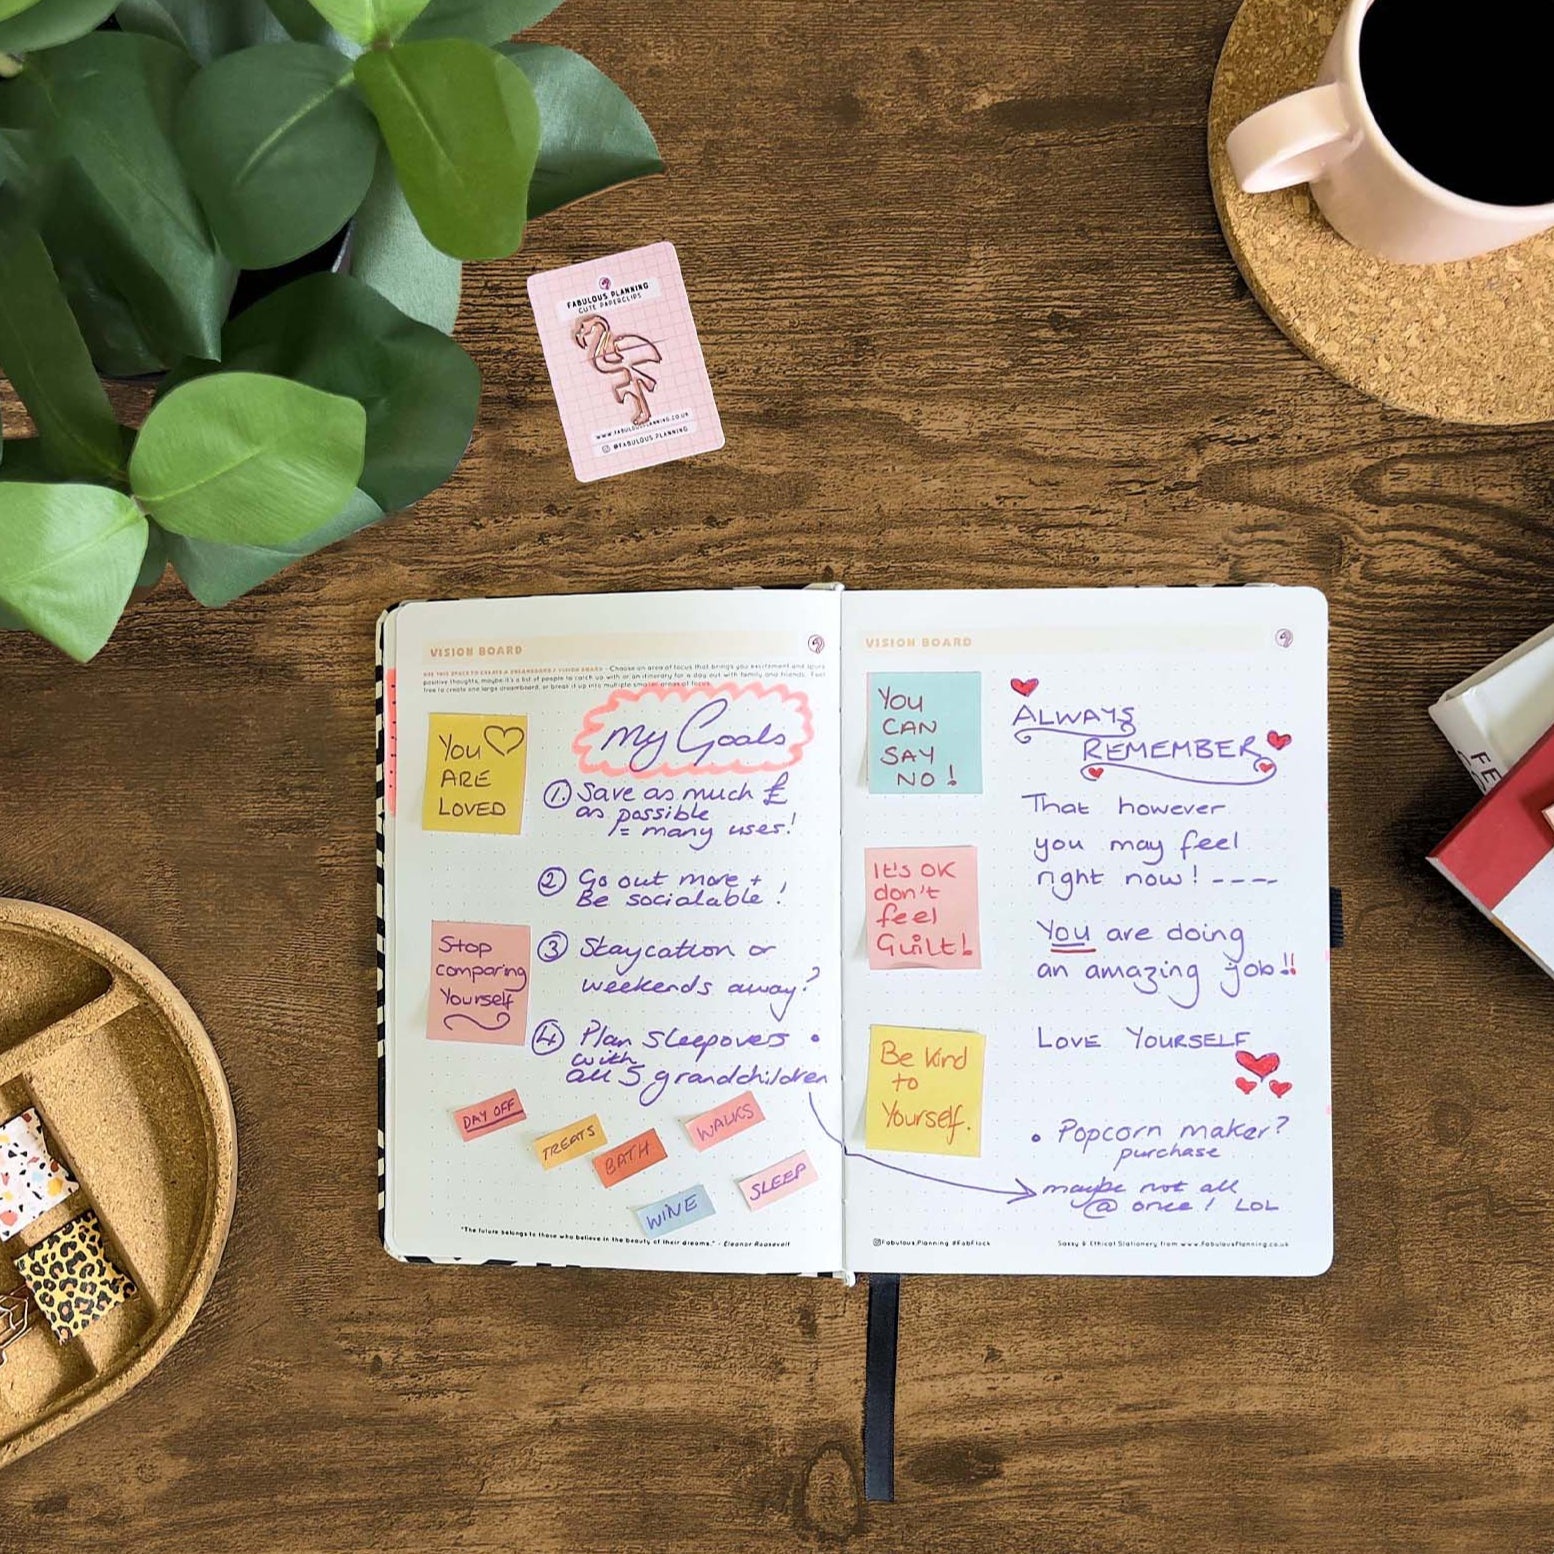 FABULOUS PLANNING
CUTE PAPERCLIPS
WWW.FABULOUSPLANNING.CO.UK
@FABULOUS.PLANNING
VISION BOARD
USE THIS SPACE TO CREATE A DREAMBOARD / VISION BOARD - Choose an area of focus that brings you excitement and spurs
positive thoughts, maybe it's a list of people to catch up with or an itinerary for a day out with family and friends. Feel
free to create one large dreamboard, or break it up into multiple smaller areas of focus.
You
ARE
LOVED
My Goals
① Save as much £
as possible
= many uses!
② Go out more +
Be socialable!
Stop
comparing
Yourself
③ Staycation or
weekends away?
④ Plan Sleepovers •
with
all 5 grandchildren
DAY OFF
TREATS
BATH
WALKS
WINE
SLEEP
"The future belongs to those who believe in the beauty of their dreams." - Eleanor Roosevelt
VISION BOARD
You
CAN
SAY
NO!
ALWAYS
REMEMBER
That however
you may feel
right now! ----
It's OK
don't
feel
Guilt!
You are doing
an amazing job!!
LOVE YOURSELF
Be Kind
to
Yourself.
• Popcorn maker?
purchase
maybe not all
@ once! LOL
@Fabulous.Planning #FabFlock
Sassy & Ethical Stationery from www.fabulousplanning.co.uk